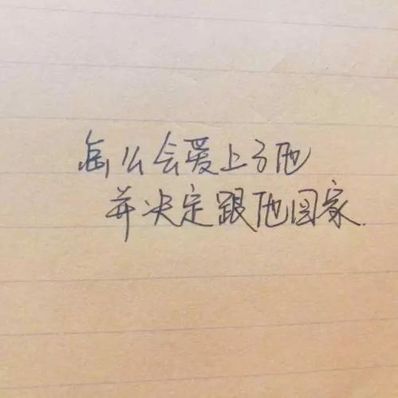 怎么会爱上了他
并决定跟他回家